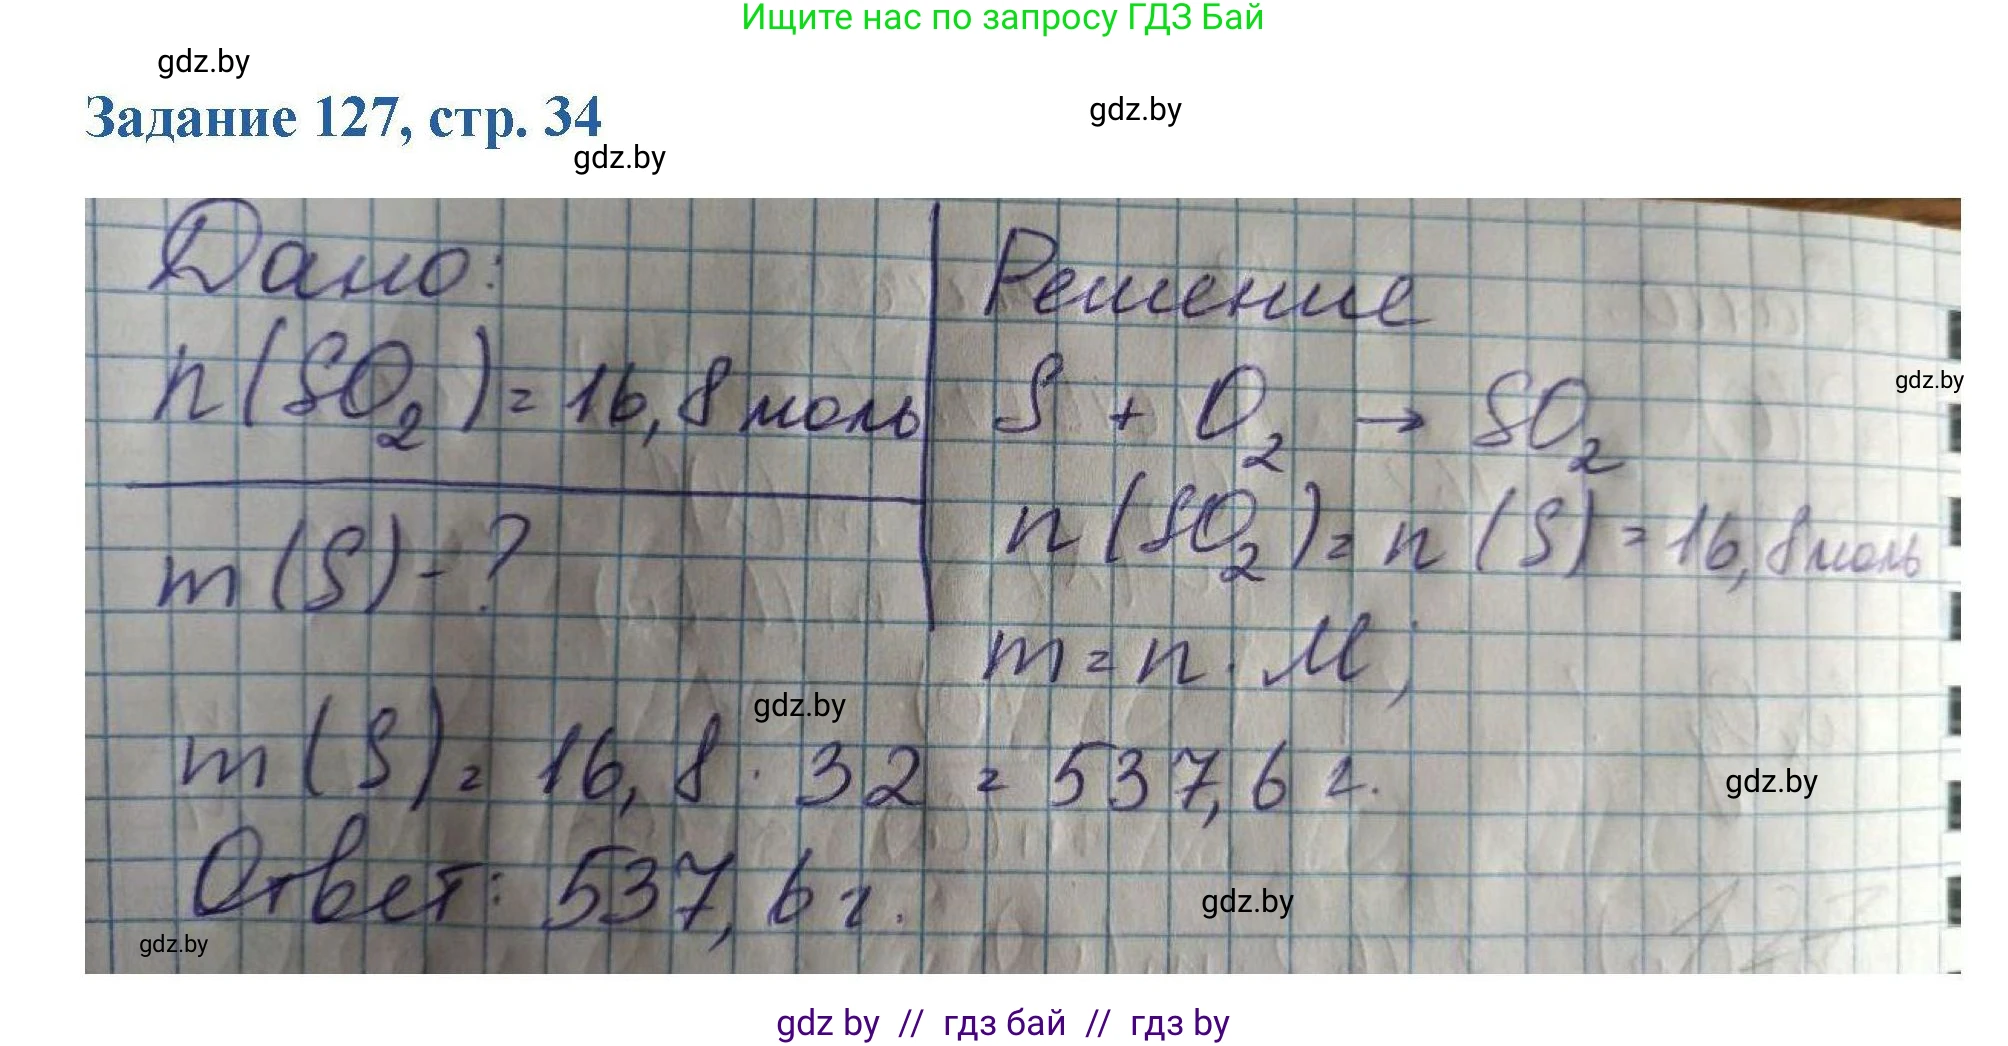 Ищите нас по запросу ГДЗ Бай
gdz.by
Задание 127, стр. 34
gdz.by
gdz.by
Дано:
n(SO₂) = 16,8 моль
m(S) - ?
Решение
S + O₂ → SO₂
gdz.by
n(SO₂) = n(S) = 16,8 моль
m = n · M;
gdz.by
m(S) = 16,8 · 32 = 537,6 г.
gdz.by
Ответ: 537,6 г.
gdz.by
127
gdz.by
gdz by // гдз бай // гдз by